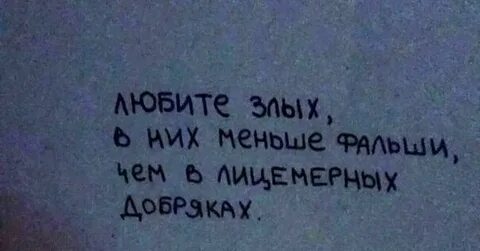 ЛЮБИТЕ ЗЛЫХ,
В НИХ МЕНЬШЕ ФАЛЬШИ,
ЧЕМ В ЛИЦЕМЕРНЫХ
ДОБРЯКАХ.